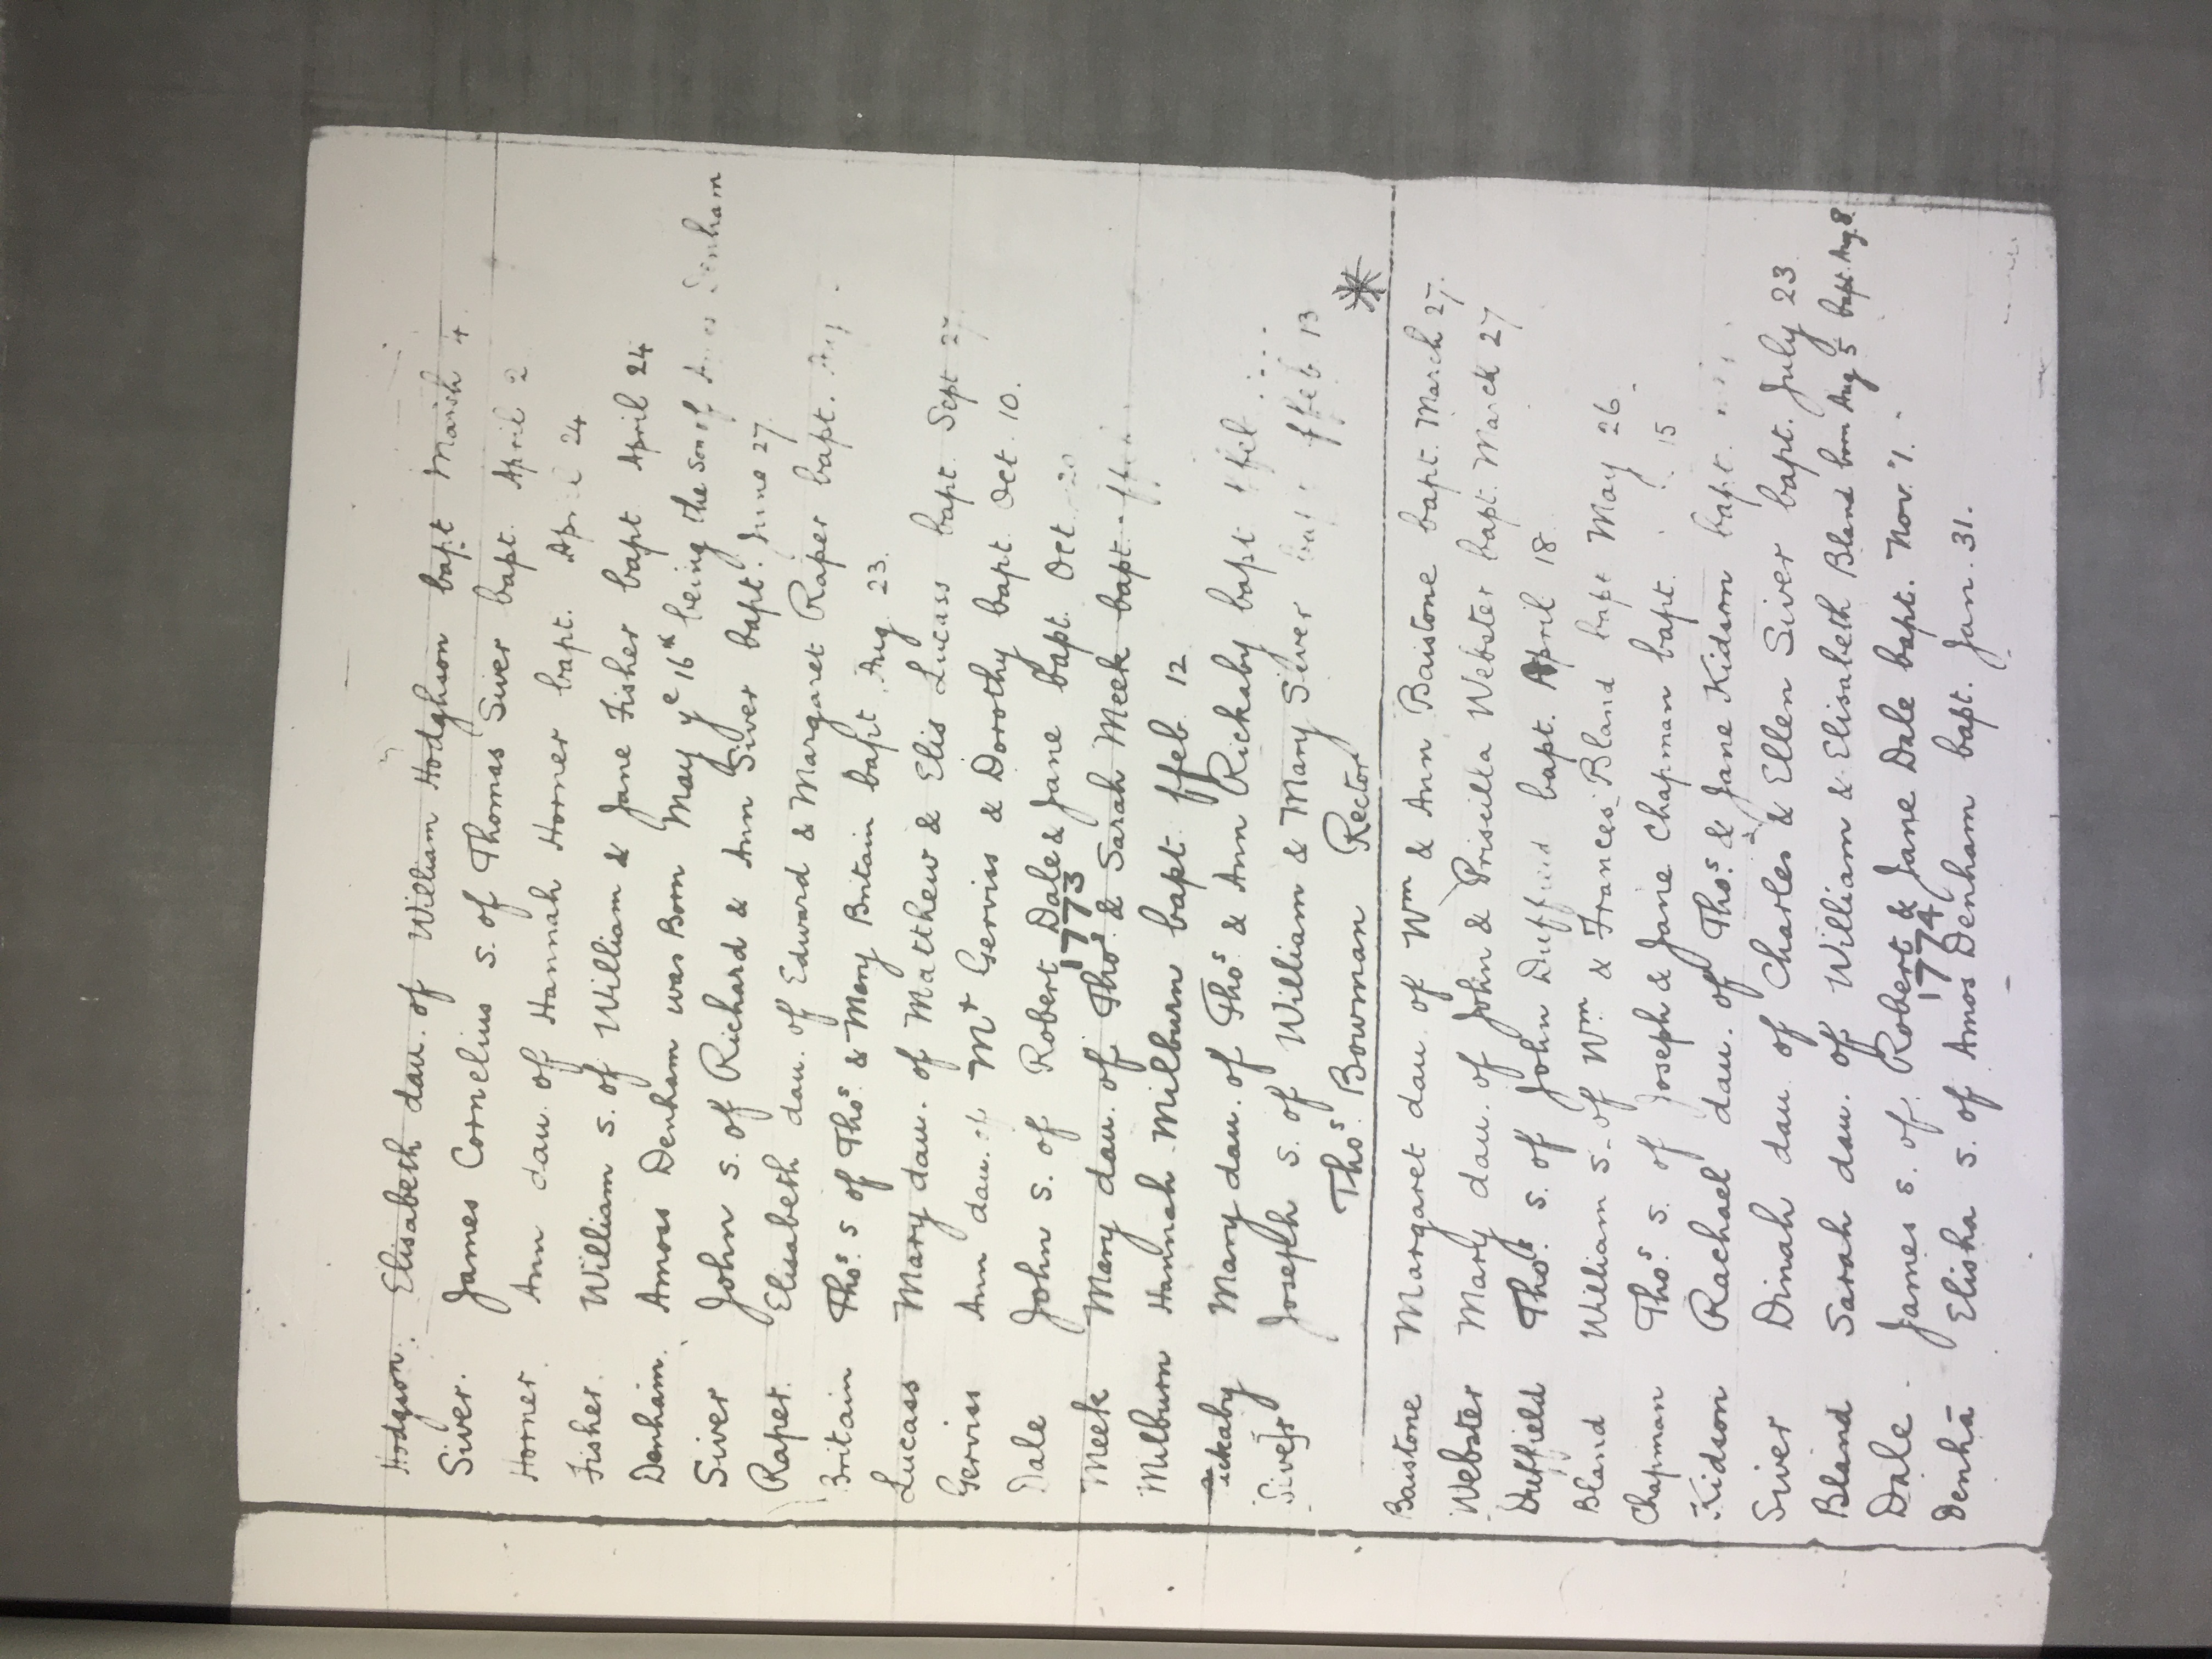 Hodgson. Elisabeth dau. of William Hodghson bapt March 4.
Siver. James Cornelius s. of Thomas Siver bapt. April 2
Horner. Ann dau. of Hannah Horner bapt. April 24
Fisher. William s. of William & Jane Fisher bapt April 24
Denham. Amoss Denham was Born May yᵉ 16ᵗʰ being the son of Denham
Siver John s. of Richard & Ann Siver bapt. June 27
Raper. Elisabeth dau. of Edward & Margaret Raper bapt. Aug
Britain Thoˢ. s of Thoˢ. & Mary Britain bapt. Aug 23.
Lucass Mary dau. of Matthew & Elis Lucass bapt. Sept 27
Gerviss Ann dau. of Mʳ Gerviss & Dorothy bapt Oct. 10.
Dale John s. of Robert Dale & Jane bapt. Oct
1773
Meek Mary dau. of Thoˢ. & Sarah Meek bapt.
Milburn Hannah Milburn bapt. ffeb. 12
Rickaby Mary dau. of Thoˢ & Ann Rickaby bapt ffeb
Siver Joseph s. of William & Mary Siver ffeb 13
Thoˢ. Bowman Rector *
Baistone Margaret dau of Wᵐ & Ann Baistone bapt. March 27.
Webster Mary dau. of John & Priscilla Webster bapt. March 27
Duffield Thoˢ. s. of John Duffield bapt. April 18.
Bland William s. of Wᵐ. & Frances Bland bapt May 26.
Chapman Thoˢ. s. of Joseph & Jane Chapman bapt. 15
Kidson Rachael dau. of Thoˢ. & Jane Kidson bapt.
Siver Dinah dau of Charles & Ellen Siver bapt. July 23
Bland Sarah dau. of William & Elisabeth Bland born Aug 5 bapt. Aug. 8.
Dale. James s. of. Robert & Jane Dale bapt. Nov. 7.
1774
Denhā Elisha s. of Amos Denham bapt. Jan. 31.